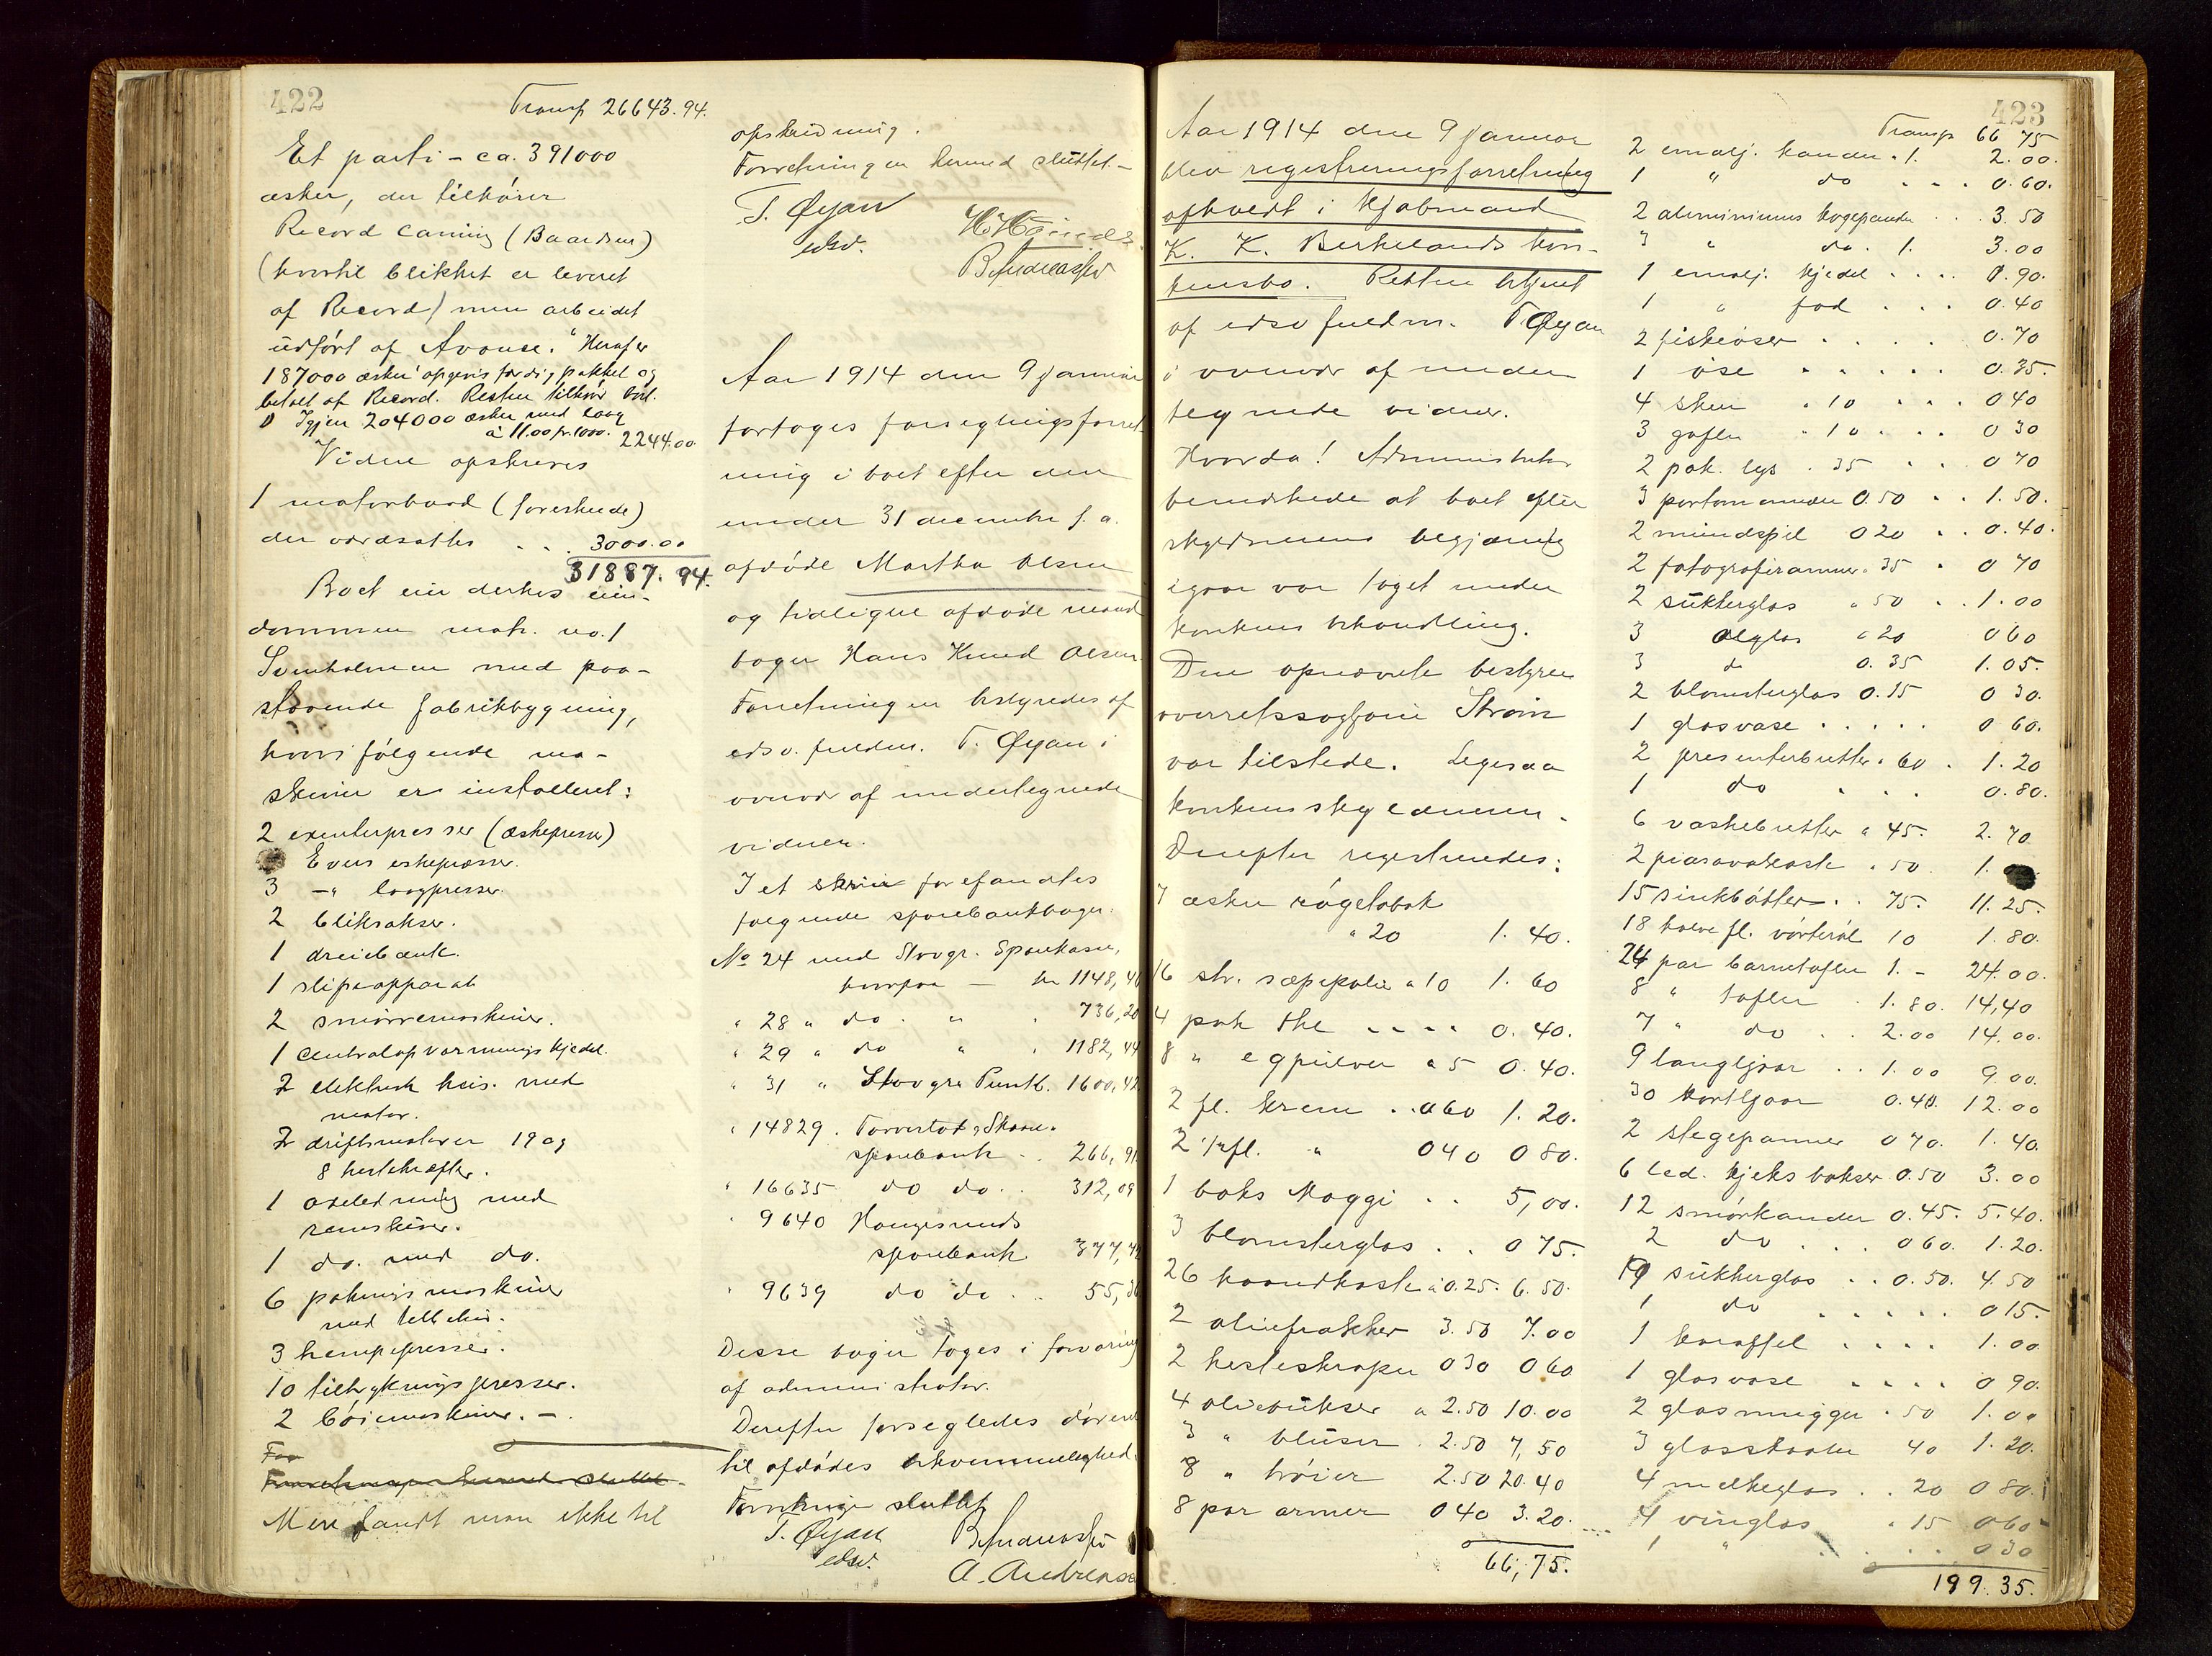 422
Transp 26643.94.
Et parti - ca. 391000
æsker, der tilhører
Record Caning (Baardsen)
(hvortil blikket er leveret
af Record) men arbeidet
udført af "Avance." Heraf er
187000 æsker opgevis færdig pakket og
betalt af Record. Resten tilhør boet.
Igjen 204000 æsker med laag
à 11.00 pr. 1000. 2244.00
Videre opskreves
1 motorbaad (forestuende)
der værdsattes . . . 3000.00
31887.94.
Boet eier derhos eien-
dommen matr. no. 1
Svinholmen med paa-
staaende fabrikbygning,
hvori følgende ma-
skiner er installeret:
2 exenterpresser (æskepresser)
Evers eskepresser.
3 -"- laagpresser.
2 bliksakser.
1 dreiebænk.
1 slipeapparat
2 smørremaskiner.
1 Centralopvarmningskjedel.
2 elektrisk heis. med
motor.
2 driftsmotorer 19 og
8 hestekræfter.
1 axeledning med
remskiver.
1 do. med do.
6 pakningsmaskiner
med tilbehør.
3 kempepresser.
10 tiltrykningspresser.
2 bøiemaskiner. -
For
Forretningen hermed sluttet.
Mere fandt man ikke til
opskrivning.
Forretningen hermed sluttet. -
T. Øyan
edsv.
B. Andreassen
Aar 1914 den 9 januar
foretoges forseglingsforret-
ning i boet efter den
under 31 december f. a.
afdøde Martha Olsen
og tidligere afdøde mand
bager Hans Knud Olsen.
Forretningen bestyredes af
edsv. fuldm. T. Øyan i
overvær af undertegnede
vidner.
I et skrin forefandtes
følgende sparebankbøger:
No 24 med Stavgr. Sparekasse,
hvorpaa - kr 1148,40
" 28 " do. " " 736,20
" 29 " do " " 1182,44
" 31 " Stavgr. Privatb. 1600,42
" 14829. Torvestad & Skaare
sparebank . . 266,91
" 16635 do do . . 312,09
" 9640 Haugesunds
sparebank 377,72
" 9639 do do . . 55,36
Disse bøger toges i forvaring
af administrator.
Derefter forsegledes døren
til afdødes bekvemmelighed.
Forretningen sluttet
T. Øyan
edsv.
B. Andreassen
A. Andreasen
423
Aar 1914 den 9 januar
blev registreringsforretning
afholdt i kjøbmand
K. K. Berkelands kon-
kursbo. Retten betjent
af edsv fuldm. T. Øyan
i overvær af under-
tegnede vidner.
Hvorda! Administrator
bemerkede at boet efter
skyldnerens begjæring
igaar var taget under
konkurs behandling.
Den opnævnte bestyrer
overretssagfører Strøm
var tilstede. Ligesaa
konkursskyldneren.
Derefter registreredes:
7 æsker røgetobak
" 20 1.40.
16 str. sæpepoler à 10 1.60
4 pak the . . . . 0.40.
8 " egpulver à 5 0.40.
2 fl. krem . . à 60 1.20.
2 1/2 fl. " 0 40 0 80.
1 boks Maggi . . 5,00.
3 blomsterglas . . 0 75.
26 haandkoste à 0.25. 6.50.
2 oliefrakker 3.50 7.00
2 hesteskraper 0 30 0 60
4 oliebukser à 2.50 10.00
3 " bluser . 2.50 7,50
8 " trøier 2.50 20.40
8 par armer 0 40 3.20.
66,75.
Transp 66 75
2 emalj. kander. 1. 2.00.
1 " do . . . 0.60.
2 aluminiums kogepander . . 3.50
3 " do. 1. 3.00
1 emalj. kjedel . . . . 0.90.
1 " fad . . . 0.40
2 fiskeøser . . . . 0.70
1 øse . . . . . 0.35.
4 skeer . 10 . . . 0 40
3 gafler . 10 . . . 0 30
2 pak. lys . 35 . . 0 70
3 portemonnæer 0.50 . . 1.50.
2 mundspil 0 20 . . 0.40.
2 fotografirammer. 35 . 0 70
2 sukkerglas . 50 . . 1.00
3 ølglas à 20 0 60
3 do 0.35 1.05.
2 blomsterglas 0.15 0 30.
1 glasvase . . . . . 0 60.
2 presenterbretter. 60 . 1.20
1 do . . . 0.80.
6 vaskebretter à 45. 2.70
2 piasavakoste . 50 1.
15 sinkbøtter . . 75. 11.25.
18 halve fl. vørterøl 10 1.80.
24 par barnetøfler 1. - 24.00.
8 " tøfler . 1.80. 14,40
7 " do . . 2.00 14.00.
9 langljaar . . 1.00 9.00.
30 kortljaar 0.40. 12.00
2 stegepanner 0 70. 1.40.
6 led. kjeksbokser 0.50 3.00
12 smørkander 0.45. 5.40.
2 do . . . 0 60. 1.20.
9 sukkerglas . . 0.50. 4.50
1 do . . . . . 0 15.
1 karaffel . . . . 1.00
1 glasvase . . . . 0 90.
2 glasmugger . 50 1.00
3 glasskaaler 40 1.20.
4 melkeglas . . 20 0 80.
4 vinglas . 15 0 60
1 " . . . . 0 30
199.35.